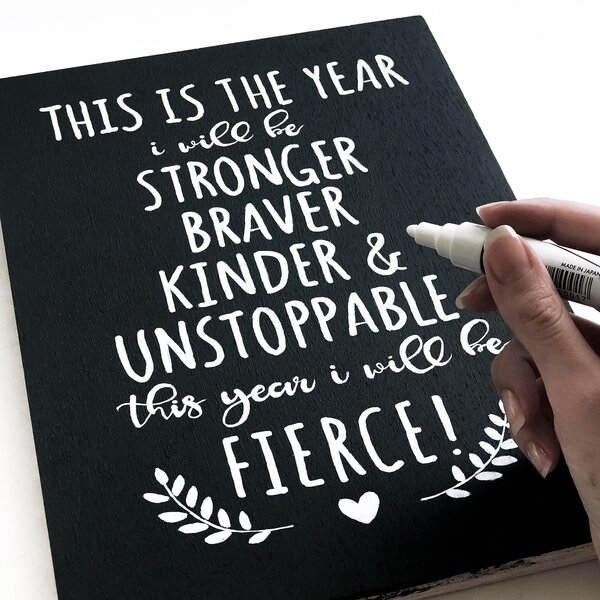 THIS IS THE YEAR
i will be
STRONGER
BRAVER
KINDER &
UNSTOPPABLE
this year i will be
FIERCE!
MADE IN JAPAN